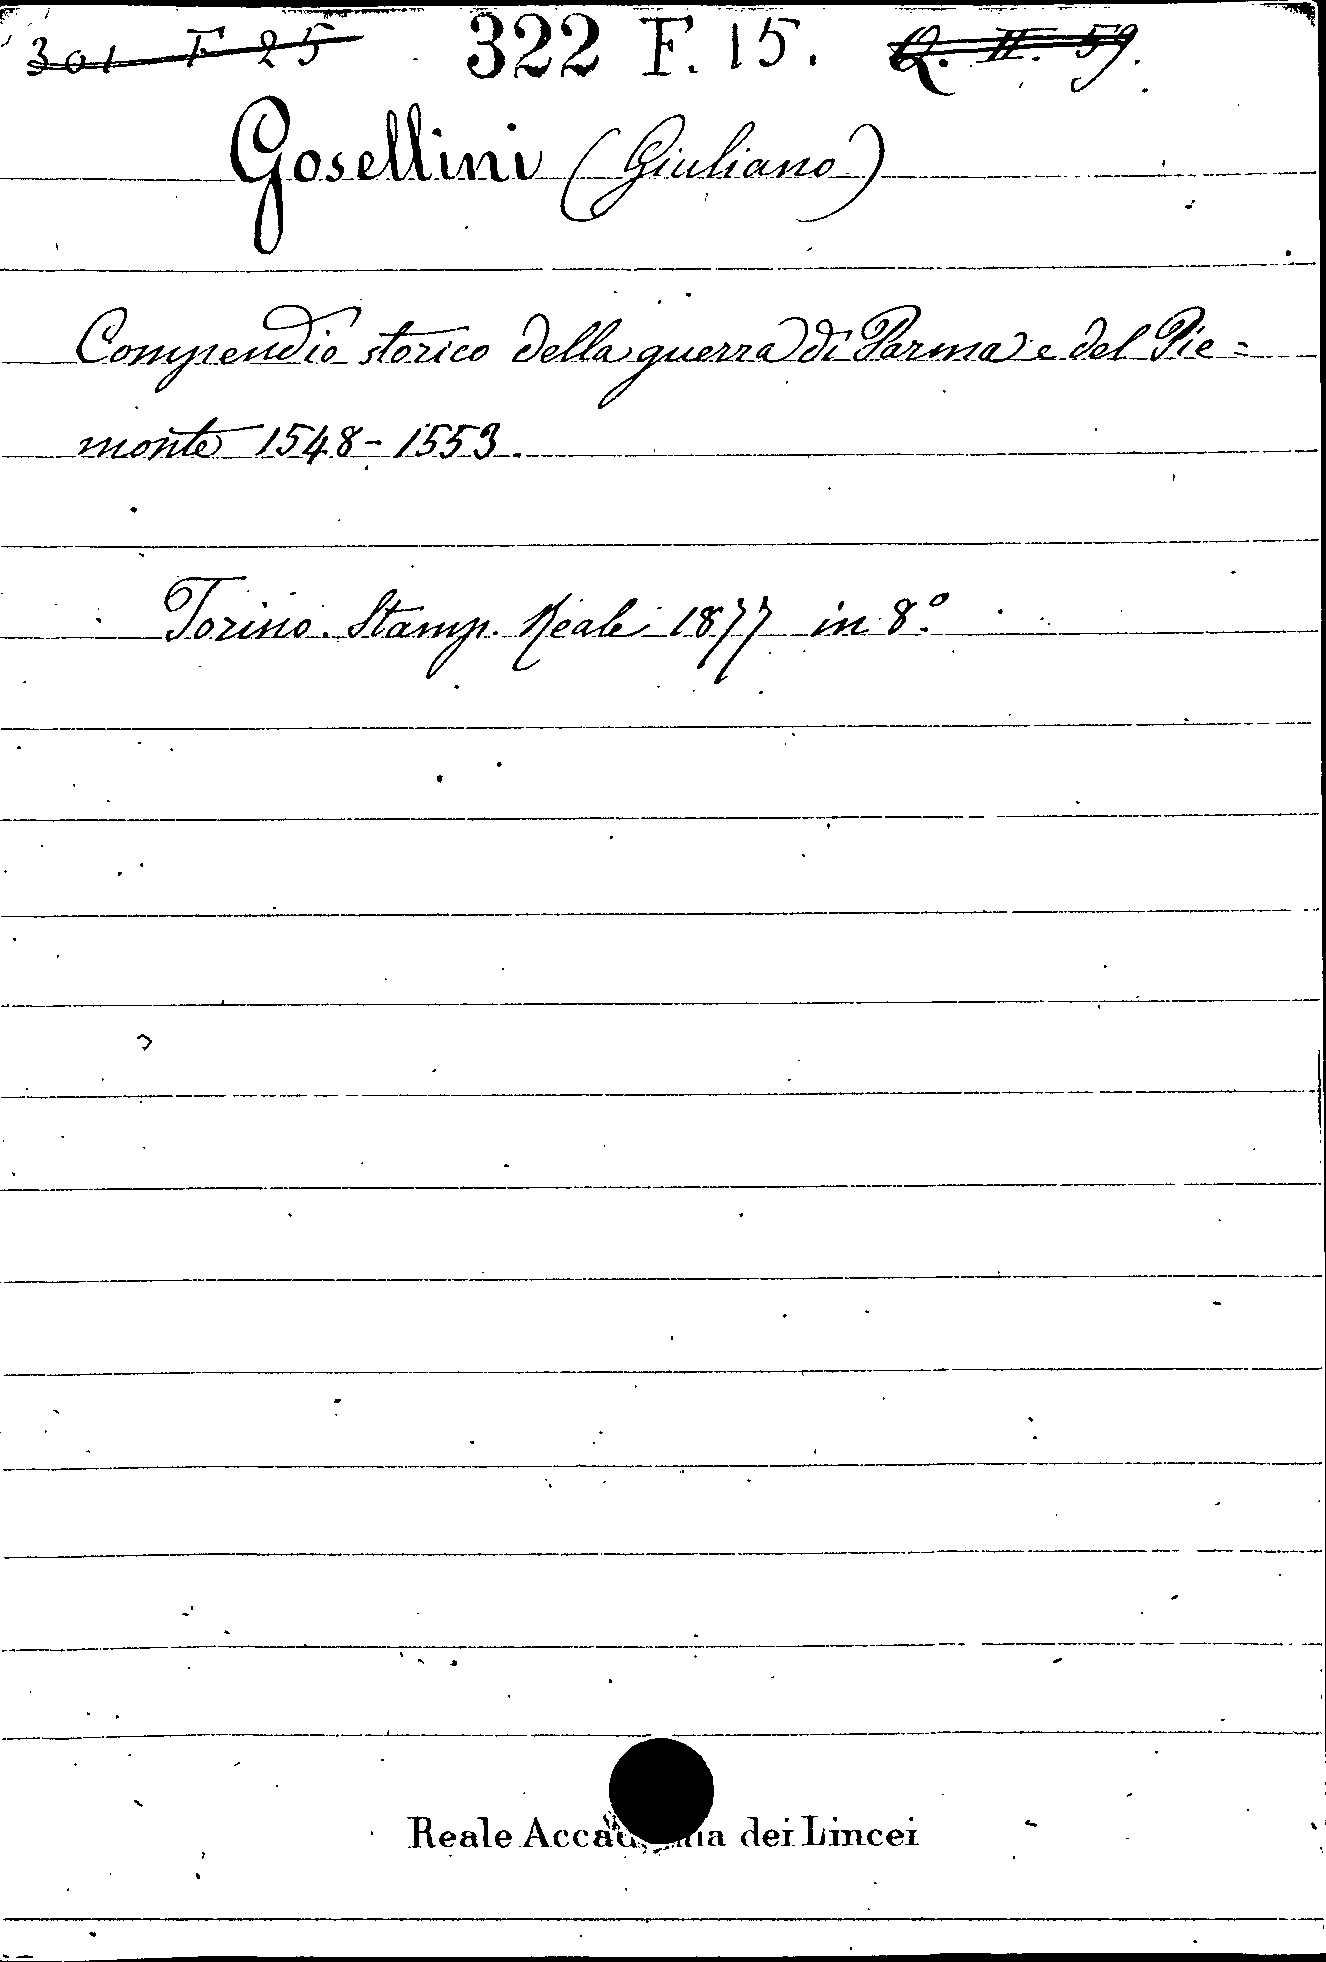 301 F 25 322 F. 15. Q. II. 59.
Gosellini (Giuliano)
Compendio storico della guerra di Parma e del Pie=
monte 1548-1553.
Torino. Stamp. Reale 1877 in 8.º
Reale Accademia dei Lincei